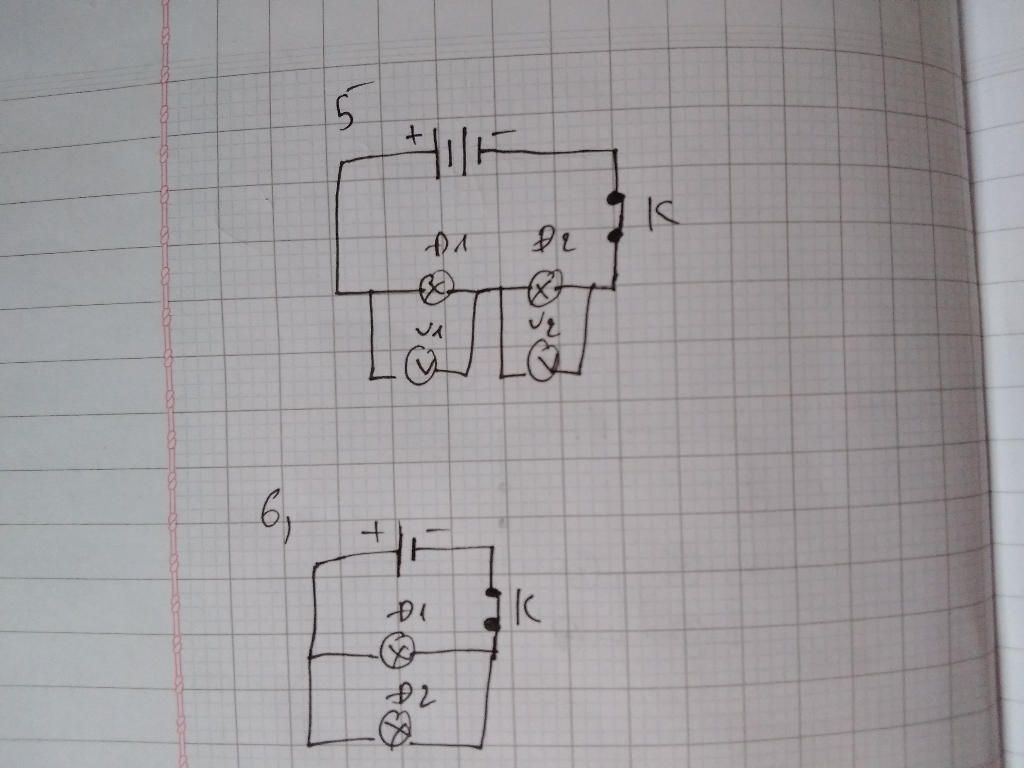 5
+ -
K
Đ1 Đ2
V1 V2
V V
6,
+ -
K
Đ1
Đ2